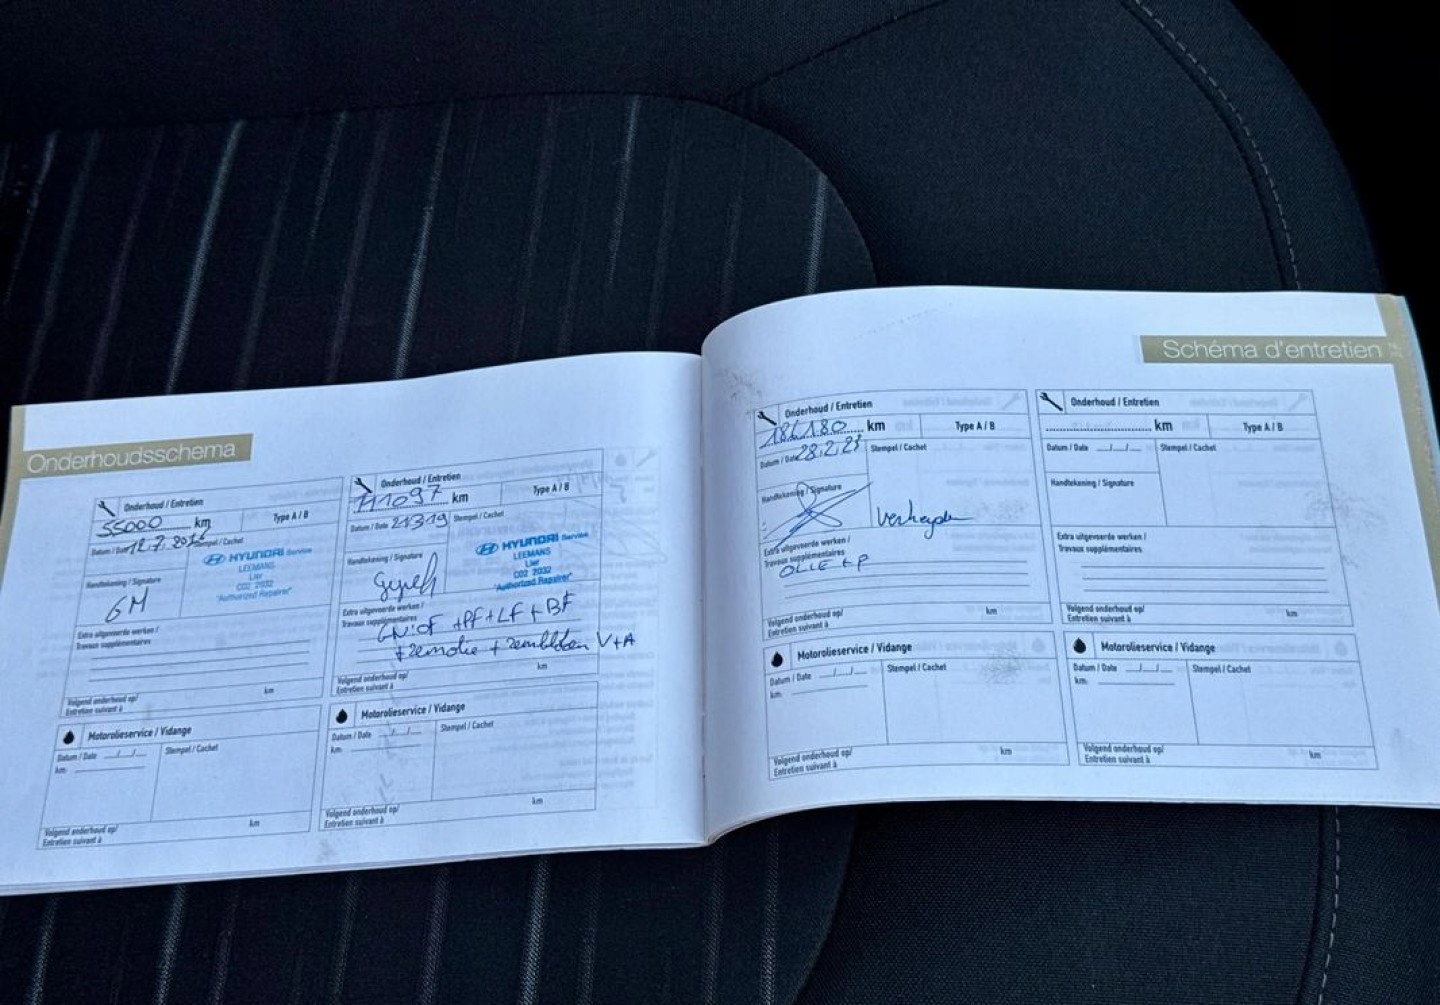 Onderhoudsschema
Onderhoud / Entretien
55000 km
Type A / B
Datum / Date 12.7.201
Stempel / Cachet
HYUNDAI Service
LEEMANS
Lier
CO2 2032
"Authorized Repairer"
Handtekening / Signature
GM
Extra uitgevoerde werken /
Travaux supplémentaires
Volgend onderhoud op/
Entretien suivant à
km
Motorolieservice / Vidange
Datum / Date __/__/__
Stempel / Cachet
km:
Volgend onderhoud op/
Entretien suivant à
km
Onderhoud / Entretien
111097 km
Type A / B
Datum / Date 21319
Stempel / Cachet
HYUNDAI Service
LEEMANS
Lier
CO2 2032
"Authorized Repairer"
Handtekening / Signature
Extra uitgevoerde werken /
Travaux supplémentaires
+ PF + LF + BF
+ remolie + remblokken V+A
Volgend onderhoud op/
Entretien suivant à
km
Motorolieservice / Vidange
Datum / Date __/__/__
Stempel / Cachet
km:
Volgend onderhoud op/
Entretien suivant à
km
Schéma d'entretien
Onderhoud / Entretien
km
Type A / B
Datum / Date 28.2.23
Stempel / Cachet
Handtekening / Signature
Verheyden
Extra uitgevoerde werken /
Travaux supplémentaires
OLIE + P
Volgend onderhoud op/
Entretien suivant à
km
Motorolieservice / Vidange
Datum / Date __/__/__
Stempel / Cachet
km:
Volgend onderhoud op/
Entretien suivant à
km
Onderhoud / Entretien
km
Type A / B
Datum / Date __/__/__
Stempel / Cachet
Handtekening / Signature
Extra uitgevoerde werken /
Travaux supplémentaires
Volgend onderhoud op/
Entretien suivant à
km
Motorolieservice / Vidange
Datum / Date __/__/__
Stempel / Cachet
km:
Volgend onderhoud op/
Entretien suivant à
km